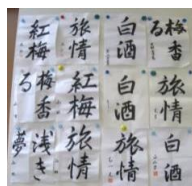 紅梅
旅情
白酒
梅香る
梅香る
紅梅
白酒
旅情
浅き夢
旅情
旅情
白酒